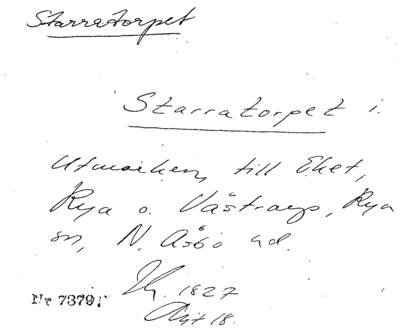 Starratorpet
Starratorpet i.
Utmarken, till Eket,
Rya o. Västraryp, Rya
sn, N. Åsbo hd.
1827
Akt 18.
Nr 7379